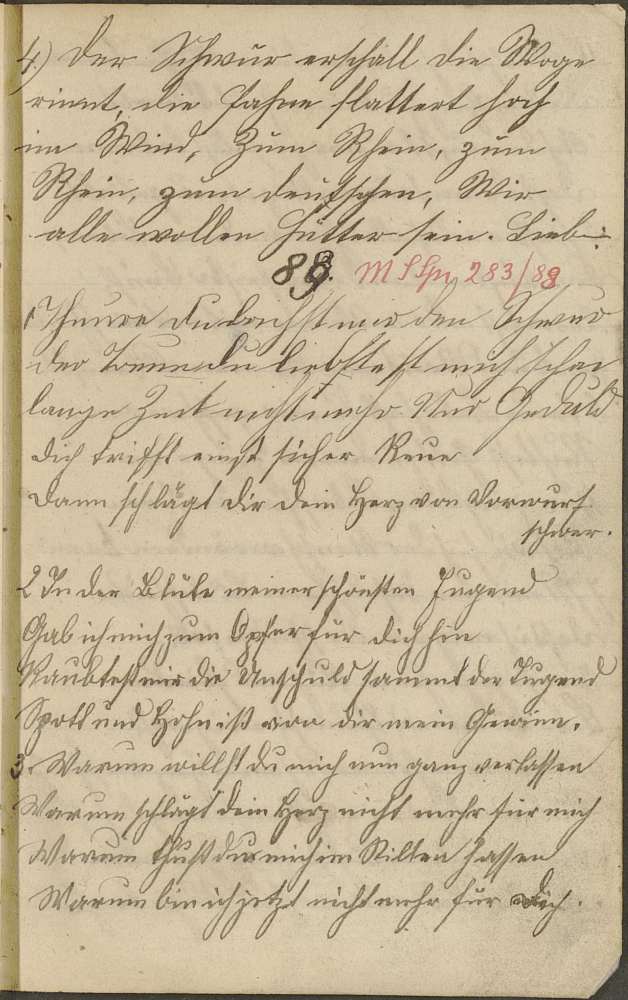 4.) Der Schwur erschall die Woge
rinnt, die Fahne flattert hoch
im Wind, Zum Rhein, zum
Rhein, zum deutschen, Wir
alle wollen Hütter sein. Lieb
88. MSHgr 283/88
1 Theure du brichst mir den Schwur
der Treue du liebst est mich schon
lange Zeit nicht mehr Nur Geduld
dich trifft einst sicher Reue
Dann schlägt dir dein Herz von Vorwurf
schwer.
2 In der Blüte meiner schönsten Jugend
Gab ich mich zum Opfer für dich hin
Raubtest mir die Unschuld sammt der Tugend
Spott und Hohn ist von dir mein Gewinn.
3. Warum willst du mich nun ganz verlassen
Warum schlägt dein Herz nicht mehr für mich
Warum thust du mich im Stillen hassen
Warum bin ich jetzt nicht mehr für dich.